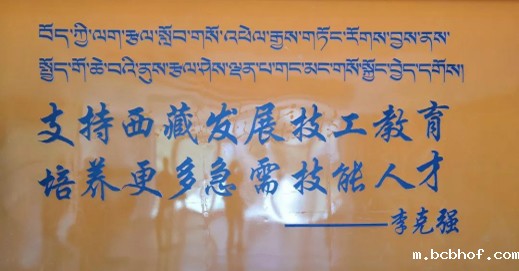 བོད་ཀྱི་ལག་རྩལ་སློབ་གསོ་འཕེལ་རྒྱས་གཏོང་རོགས་བྱས་ནས་
སྤྱོད་གོ་ཆེ་བའི་ནུས་རྩལ་ཤེས་ལྡན་པ་གང་མང་གསོ་སྐྱོང་བྱེད་དགོས།
支持西藏发展技工教育
培养更多急需技能人才
——李克强
m.bcbhof.com